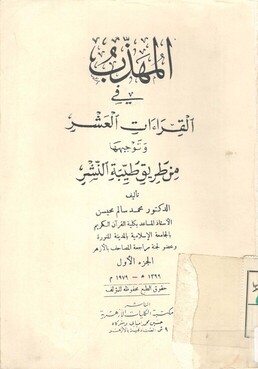 المهذب
في
القراءات العشر
وتوجيهها
من طريق طيبة النشر
تأليف
الدكتور محمد سالم محيسن
الأستاذ المساعد بكلية القرآن الكريم
بالجامعة الإسلامية بالمدينة المنورة
وعضو لجنة مراجعة المصاحف بالأزهر
الجزء الأول
١٣٩٩ هـ – ١٩٧٩ م
حقوق الطبع محفوظة للمؤلف
الناشر
مكتبة الكليات الأزهرية